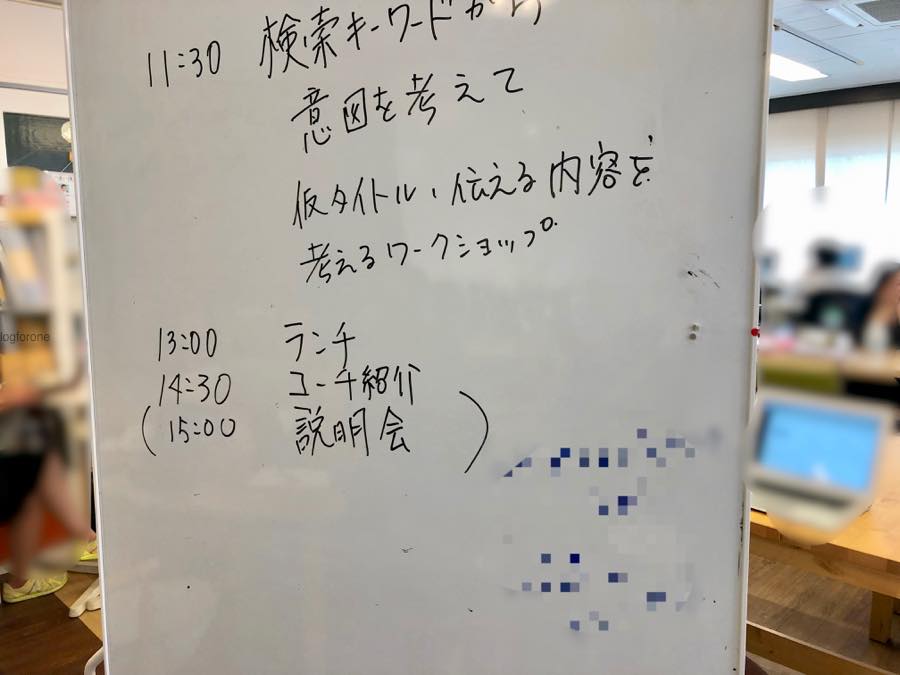 11:30 検索キーワードから
意図を考えて
仮タイトル・伝える内容を
考えるワークショップ。
13:00 ランチ
14:30 コーチ紹介
(15:00 説明会)
logforone